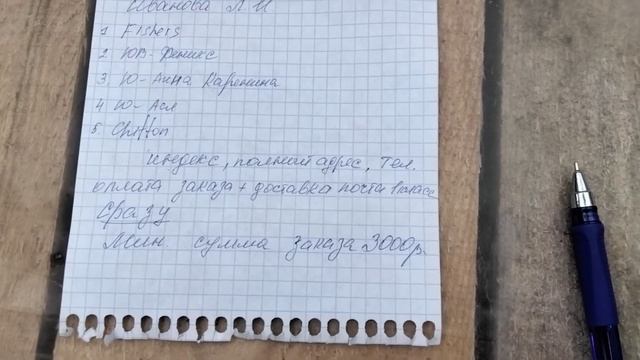 Иванова Л И
1 Fishers
2 ЮВ-Феникс
3. Ю-Анна Каренина
4 Ю-Асл
5. Chiffon
индекс, полный адрес, тел.
оплата заказа + доставка почта 1 класс
сразу
Мин. сумма заказа 3000р.